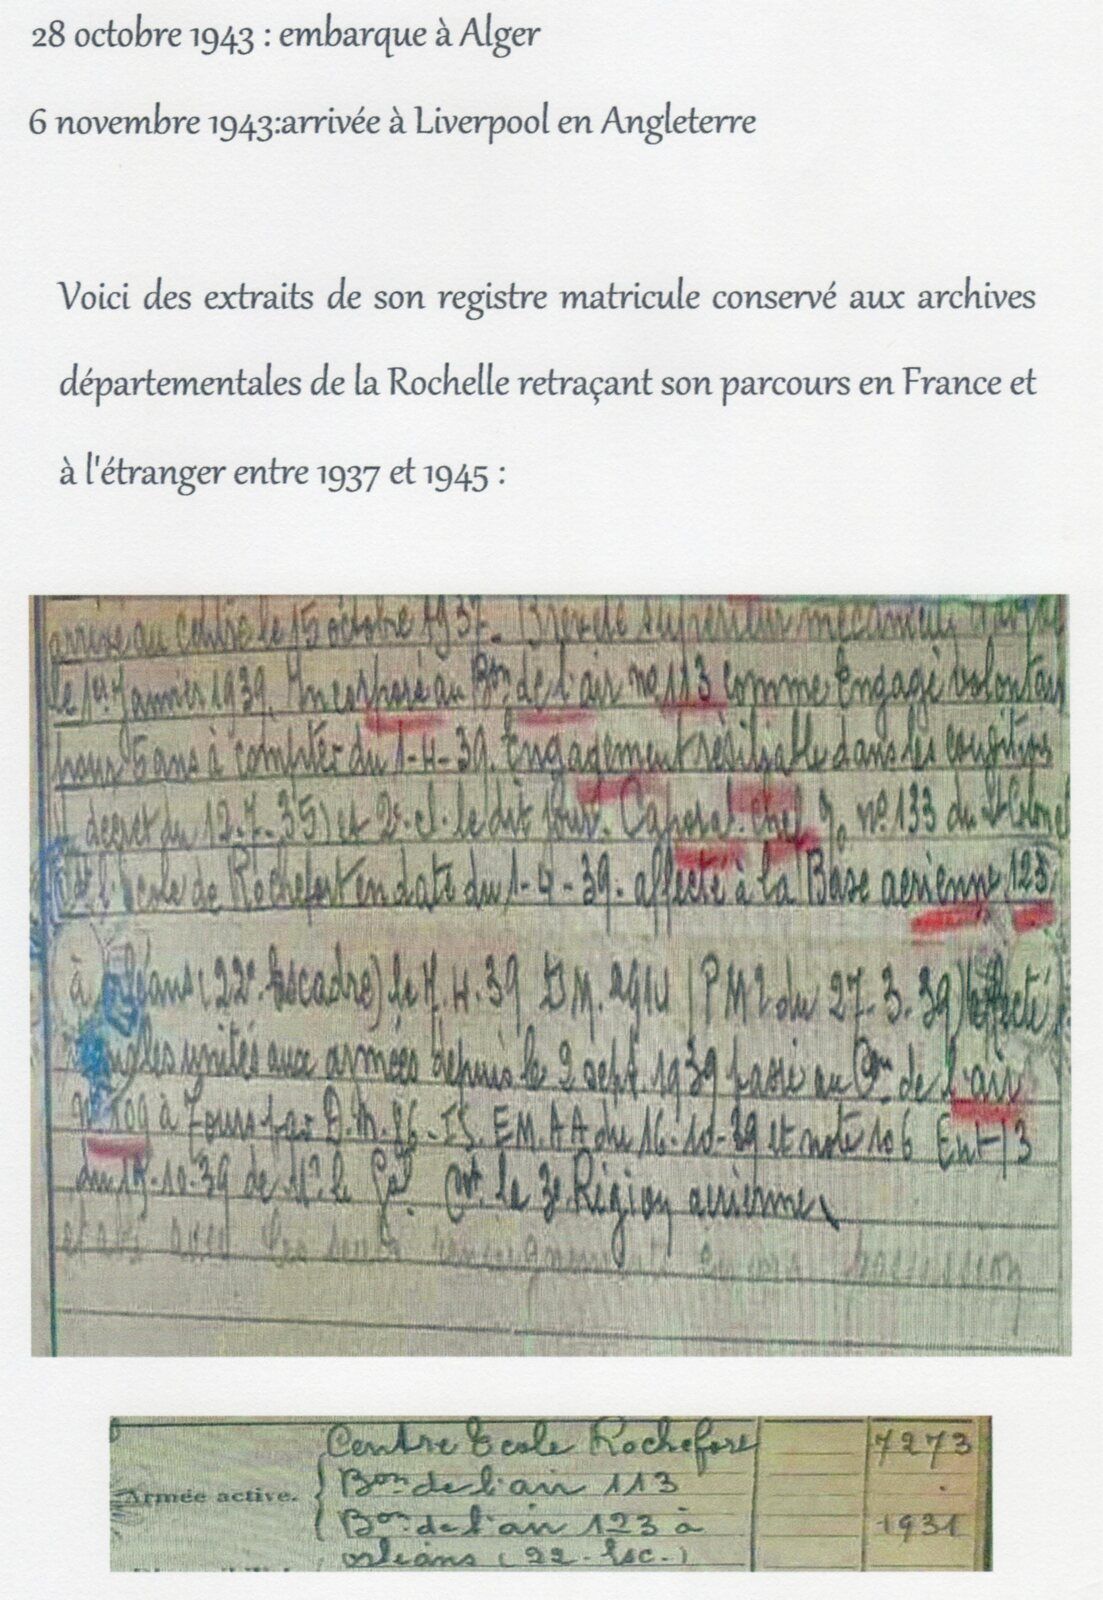 28 octobre 1943 : embarque à Alger
6 novembre 1943:arrivée à Liverpool en Angleterre
Voici des extraits de son registre matricule conservé aux archives
départementales de la Rochelle retraçant son parcours en France et
à l'étranger entre 1937 et 1945 :
arrivé au centre le 15 octobre 1937. Breveté supérieur mécanicien
le 1er Janvier 1939. Incorporé au Bon de l'air no 113 comme Engagé volontaire
pour 5 ans à compter du 1-4-39. Engagement résiliable dans les conditions
décret du 12.7.35) et 2e cl. le dit jour. Caporal. chef no 133 du Lt Colonel
école de Rochefort en date du 1-4-39. affecté à la Base aerienne 123
à Orléans (22e Escadre) le 4.39 D.M. du 27-3-39) Affecté
unités aux armées depuis le 2 sept. 1939 passé au Bon de l'air
no 109 à Tours par D.M. 86-IS. EM.AA du 16-10-39 et note 106
du -10-39 de Mr. le Gal Cmt. la 3e Région aerienne
Armée active.
Centre Ecole Rochefort 7273
Bon de l'air 113
Bon de l'air 123 à 1931
orléans (22. Esc.)